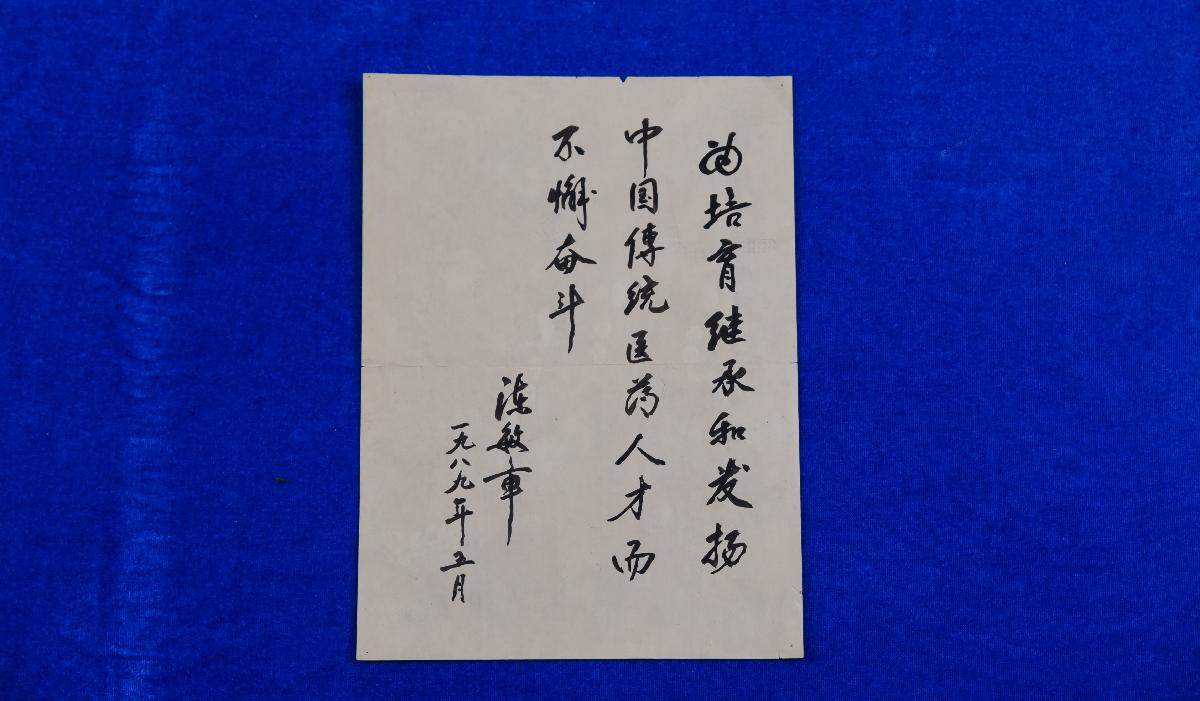 为培育继承和发扬
中国傳统医药人才而
不懈奋斗
陈敏章
一九八九年五月